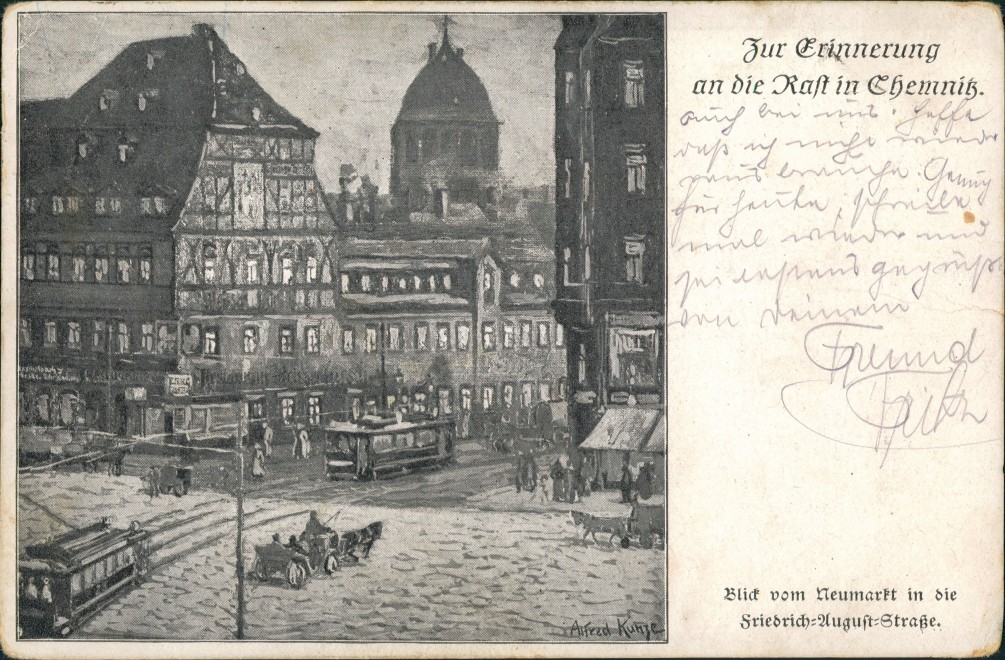 Zur Erinnerung
an die Rast in Chemnitz.
auch bei uns. Hoffe
daß ich nicht wieder
raus brauche. Genug
für heute, schreibe
mal wieder und
sei bestens gegrüßt
von deinem
Freund
Fritz
Alfred Kunze
Blick vom Neumarkt in die
Friedrich-August-Straße.